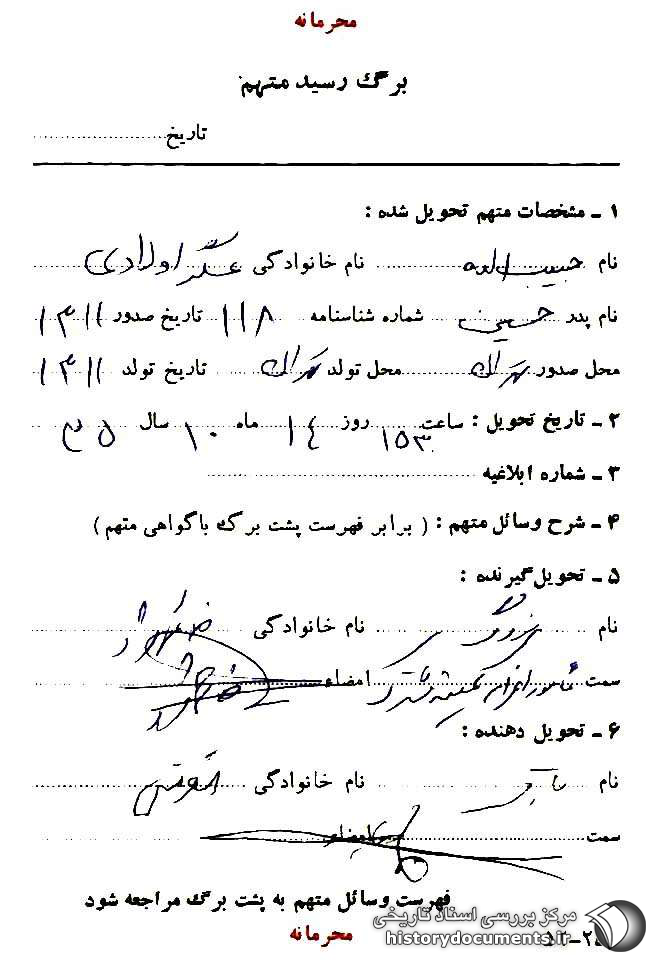 محرمانه
برگ رسید متهم
تاریخ
۱ ـ مشخصات متهم تحویل شده :
نام حبیب اله نام خانوادگی عسگر اولادی
نام پدر حسین شماره شناسنامه ۱۱۸ تاریخ صدور ۱۳۱۱
محل صدور تهران محل تولد تهران تاریخ تولد ۱۳۱۱
۲ ـ تاریخ تحویل : ساعت ۱۵۳۰ روز ۱۴ ماه ۱۰ سال ۳۵
۳ ـ شماره ابلاغیه
۴ ـ شرح وسائل متهم : ( برابر فهرست پشت برگ باگواهی متهم )
۵ ـ تحویل گیرنده :
نام نام خانوادگی
سمت مامور اعزامی کمیته مشترک امضاء
۶ ـ تحویل دهنده :
نام نام خانوادگی
سمت امضاء
فهرست وسائل متهم به پشت برگ مراجعه شود
محرمانه
مرکز بررسی اسناد تاریخی
historydocuments.ir